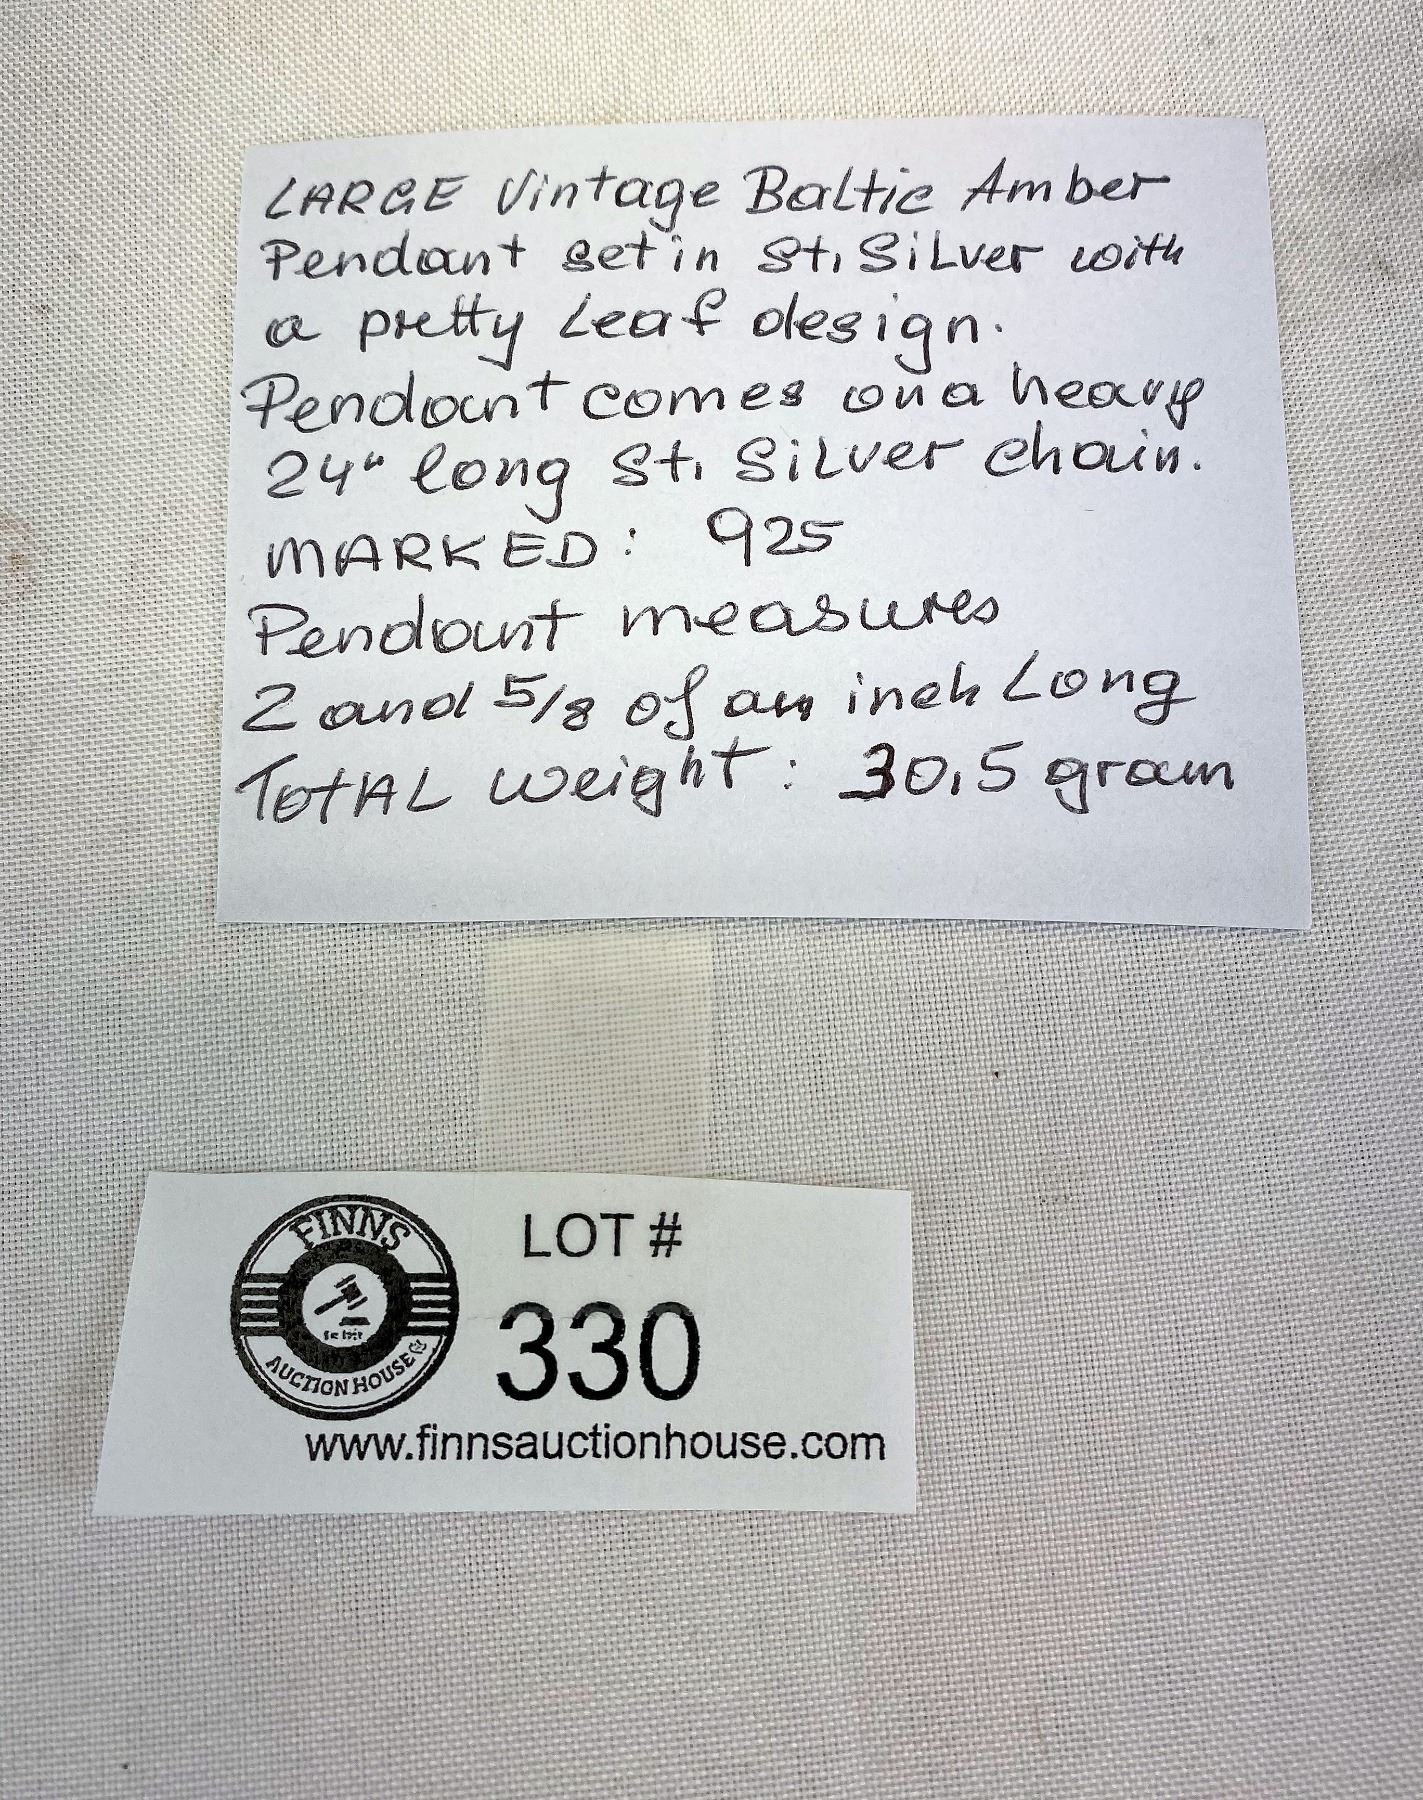 LARGE Vintage Baltic Amber
Pendant set in St. Silver with
a pretty Leaf design.
Pendant comes on a heavy
24" long St. Silver chain.
MARKED: 925
Pendant measures
2 and 5/8 of an inch Long
TOTAL weight: 30.5 gram
FINNS
AUCTION HOUSE
LOT #
330
www.finnsauctionhouse.com